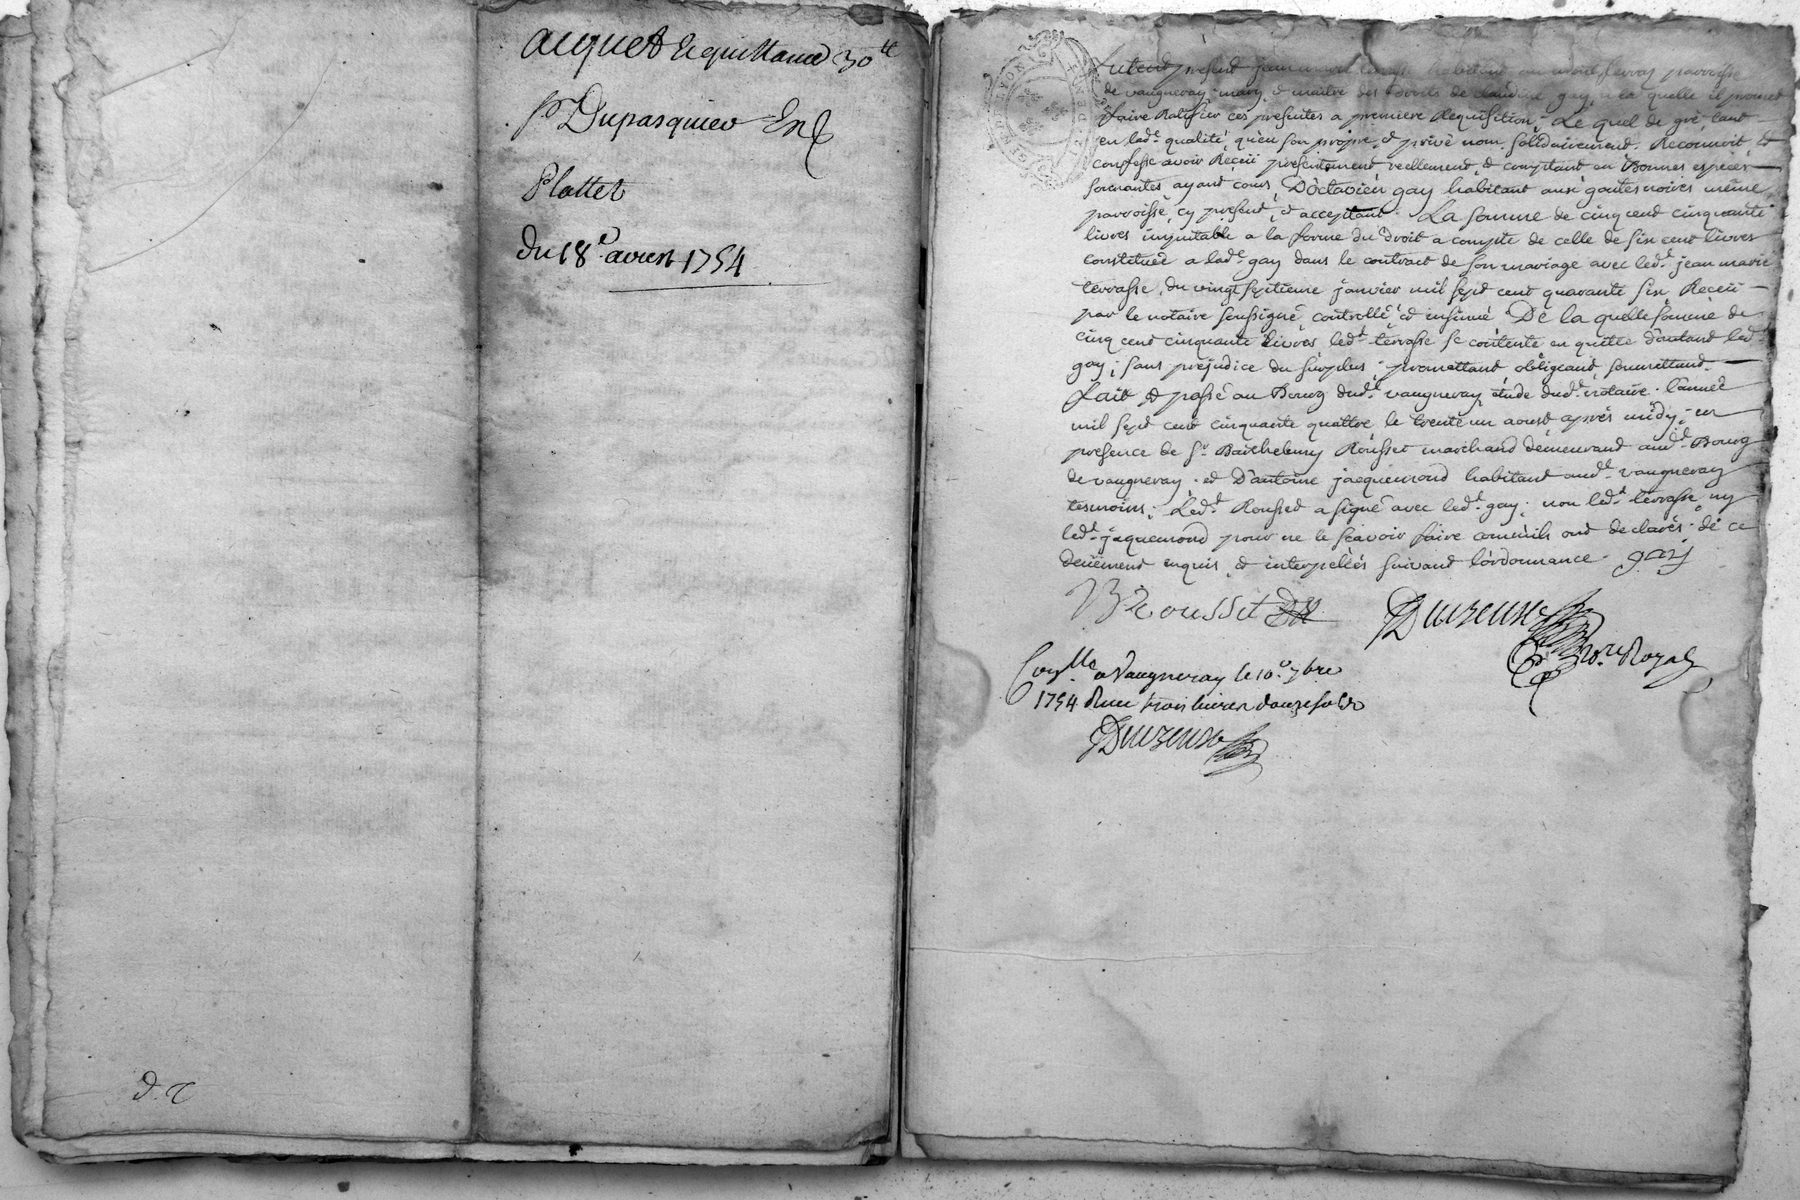 acquet & quittance 30ᵗᵗ
pʳ Dupasquier Et
Plattet
Du 18ᵉ avril 1754
d. c
fut present jean marie terrasse habitant au parroisse
de vaugneray mary & maitre des droits de claudine gay, a la quelle il promet
faire Ratifier ces presentes a premiere Requisition; Le quel de gré, tant
en ladᵉ qualité, qu'en son propre, et privé nom solidairement. Reconnoit et
confesse avoir Receü presentement reellement, & comptant en Bonnes especes
sonnantes ayant cours, D'octavien gay habitant aux goutes noires même
parroisse, cy present, et acceptant. La somme de cinq cent cinquante
livres imputable a la forme du droit a compte de celle de six cent livres
constituée a ladᵉ gay dans le contract de son mariage avec ledᵗ jean marie
terrasse, du vingt septieme janvier mil sept cent quarante six Receü
par le notaire soussigné, controllé, et insinué De la quelle somme de
cinq cent cinquante livres ledᵗ terrasse se contente en quitte d'autant ledᵗ
gay; sans prejudice du surplus; promettant, obligeant, soumettant
fait & passé au Bourg dudᵗ vaugneray étude dudᵗ notaire. L'année
mil sept cent cinquante quattre le trente un aoust après midy; en
presence de sʳ Barthelemy Rousset marchand demeurant audᵗ Bourg
de vaugneray et D'antoine jacquemond habitant audᵗ vaugneray
tesmoins; Ledᵗ Rousset a signé avec ledᵗ gay; non ledᵗ terrasse ny
ledᵗ jaquemond pour ne le sçavoir faire comm'ils ont declarés de ce
deüement enquis, et interpellés suivant l'ordonnance. gay
B Rousset
Duizeuse
Noʳᵉ Royal
Conˡˡᵉ a Vaugneray le 10ᵉ 7bre
1754 Receu trois livres douze sols
Duizeuse